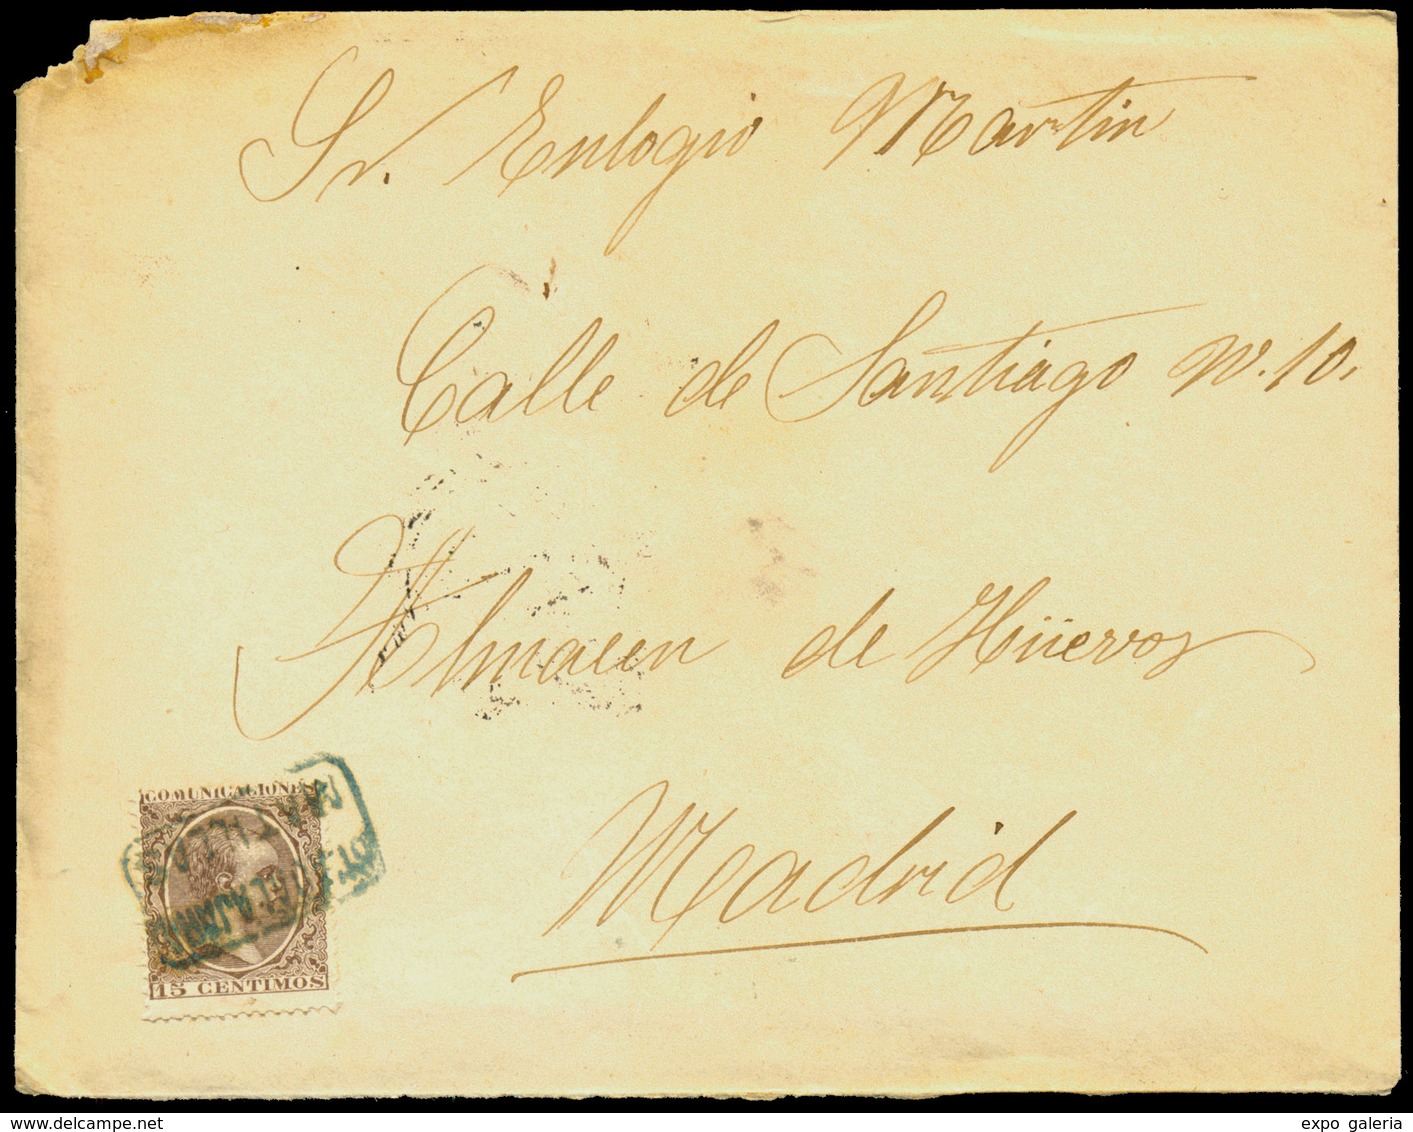 Sr. Eulogio Martin
Calle de Santiago Nº. 10.
Almacen de Hüevos
Madrid
COMUNICACIONES
15 CENTIMOS
expo galeria